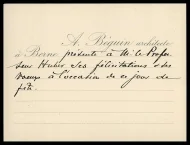 A. Béguin architecte
à Berne présente à Mr le Profes
seur Huber ses félicitations & des
voeux à l'occasion de ce jour de
fête.